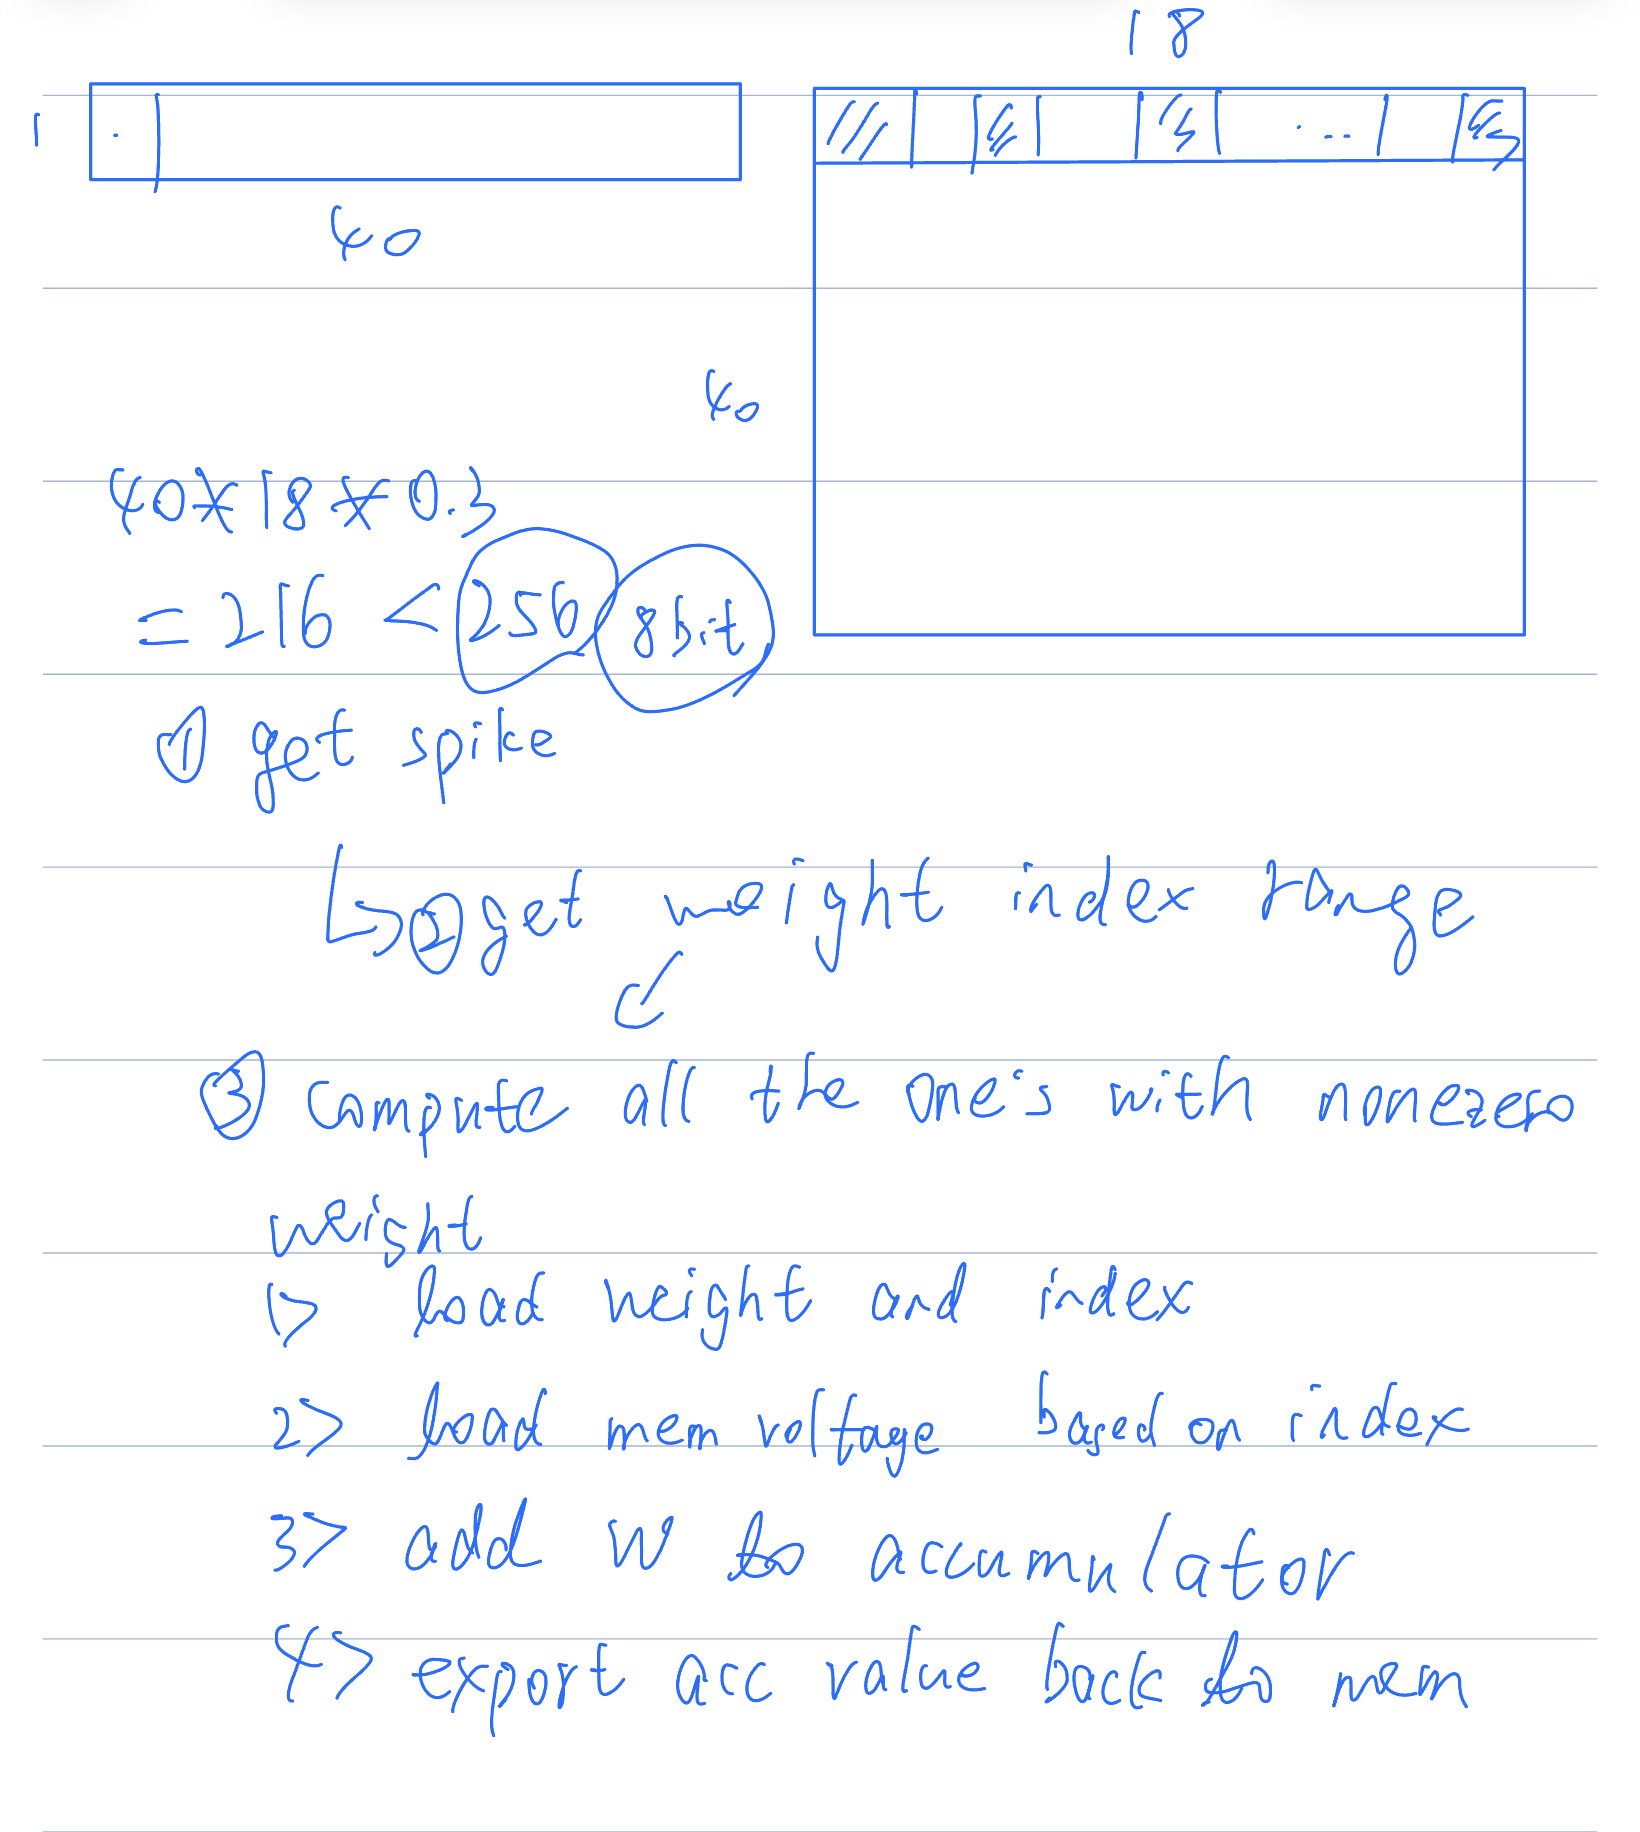 18
1
40
40
40*18*0.3
=216 < 256 8bit
① get spike
② get weight index range
③ compute all the one's with nonezero
weight
1> load weight and index
2> load mem voltage based on index
3> add W to accumulator
4> export acc value back to mem